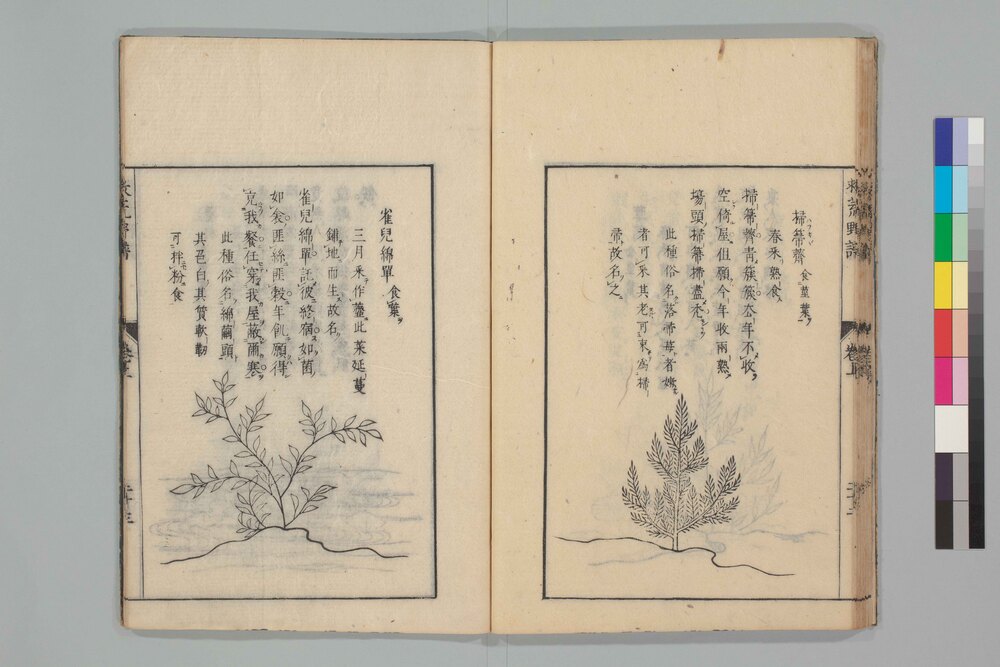 救荒野譜
掃箒薺 食莖葉
春采熟食
掃箒薺青簇簇去年不收
空倚屋但願今年收兩熟
場頭掃箒掃盡禿
此種俗名落帚苺者嫩
者可采其老可束為掃
帚故名之
雀兒綿單 食葉
三月采作虀此菜延蔓
鋪地而生故名
雀兒綿單託彼終宿如茵
如衾匪絲匪穀年飢願得
充我餐任穿我屋蔽爾塞
此種俗名綿繭頭
其色白其質軟韌
可拌粉食